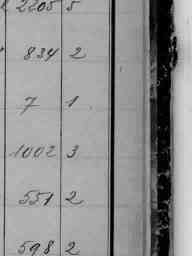 2205 5
834 2
7 1
1002 3
551 2
598 2